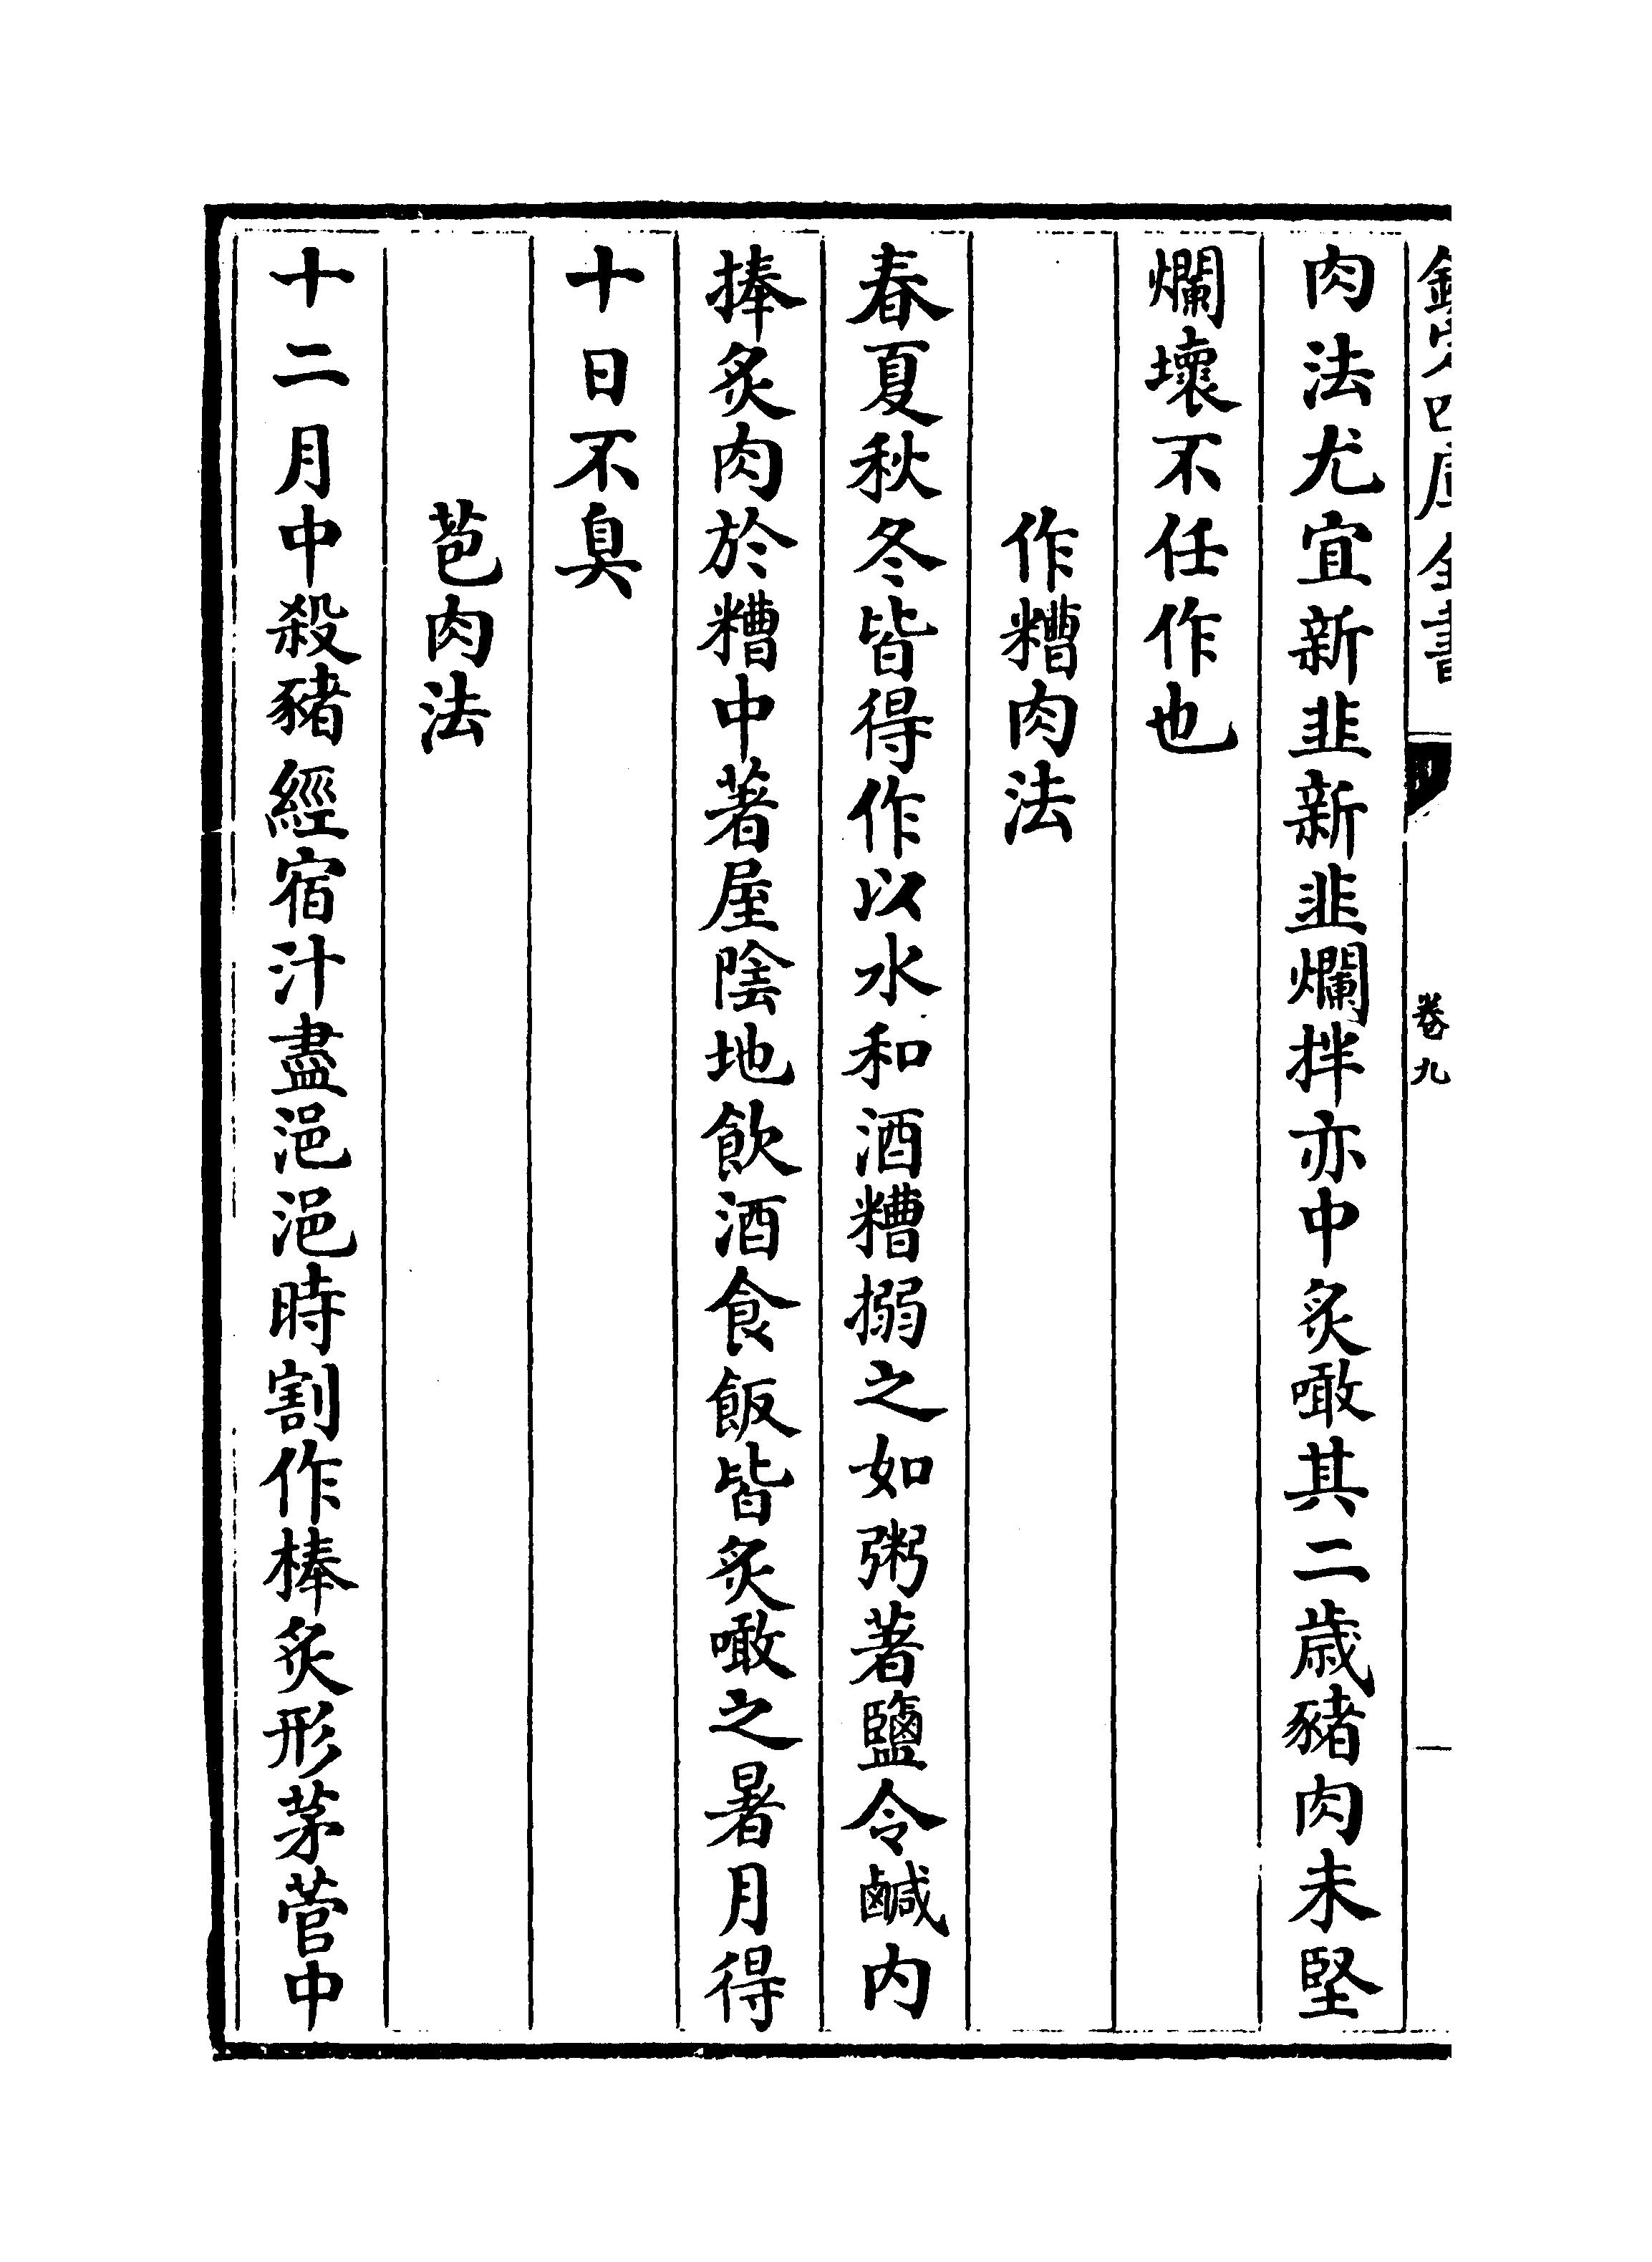 欽定四庫全書
卷九
肉法尤宜新韭新韭爛拌亦中炙噉其二歲豬肉未堅
爛壞不任作也
作糟肉法
春夏秋冬皆得作以水和酒糟搦之如粥著鹽令鹹内
捧炙肉於糟中著屋陰地飲酒食飯皆炙噉之暑月得
十日不臭
苞肉法
十二月中殺豬經宿汁盡浥浥時割作棒炙形茅菅中